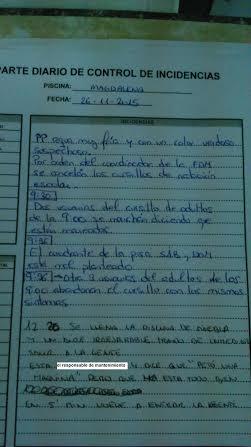 PARTE DIARIO DE CONTROL DE INCIDENCIAS
PISCINA: MAGDALENA
FECHA: 26-11-2015
INCIDENCIAS
PP agua muy fría y con un color verdoso
sospechoso.
Por orden del coordinador de la FDM
se cancelan los cursillos de natación
escolar.
9:30
Dos usuarias del cursillo de adultos
de la 9:00 se marchan diciendo que
están mareadas.
9:35
El cuadrante de la para SAB, DOM
esta mal planteado.
9:36 → Otra 3 usuarios del adultos de las
9:00 abandonan el cursillo con los mismos
síntomas.
12 20 SE LLENA LA PISCINA DE NIEBLA
Y UN OLOR IRRESPIRABLE, TRAIGO DE
SACAR A LA GENTE
ESTA el responsable de mantenimiento Y DICE QUE
MAQUINA" PERO QUE YA ESTA TODO BIEN
EN 5 MIN VUELVE A ENTRAR LA GENTE